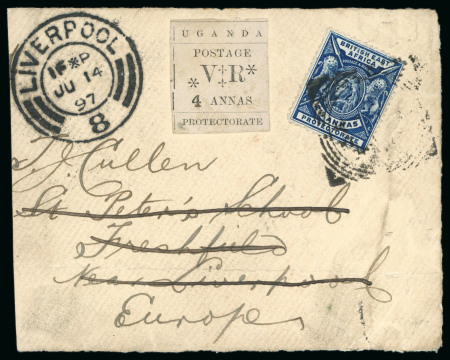 LIVERPOOL
JU 14
97
8
UGANDA
POSTAGE
V R
4 ANNAS
PROTECTORATE
BRITISH EAST
AFRICA
ANNAS
PROTECTORATE
T. J. Cullen
St Peter's School
Freshfield
Near Liverpool
Europe